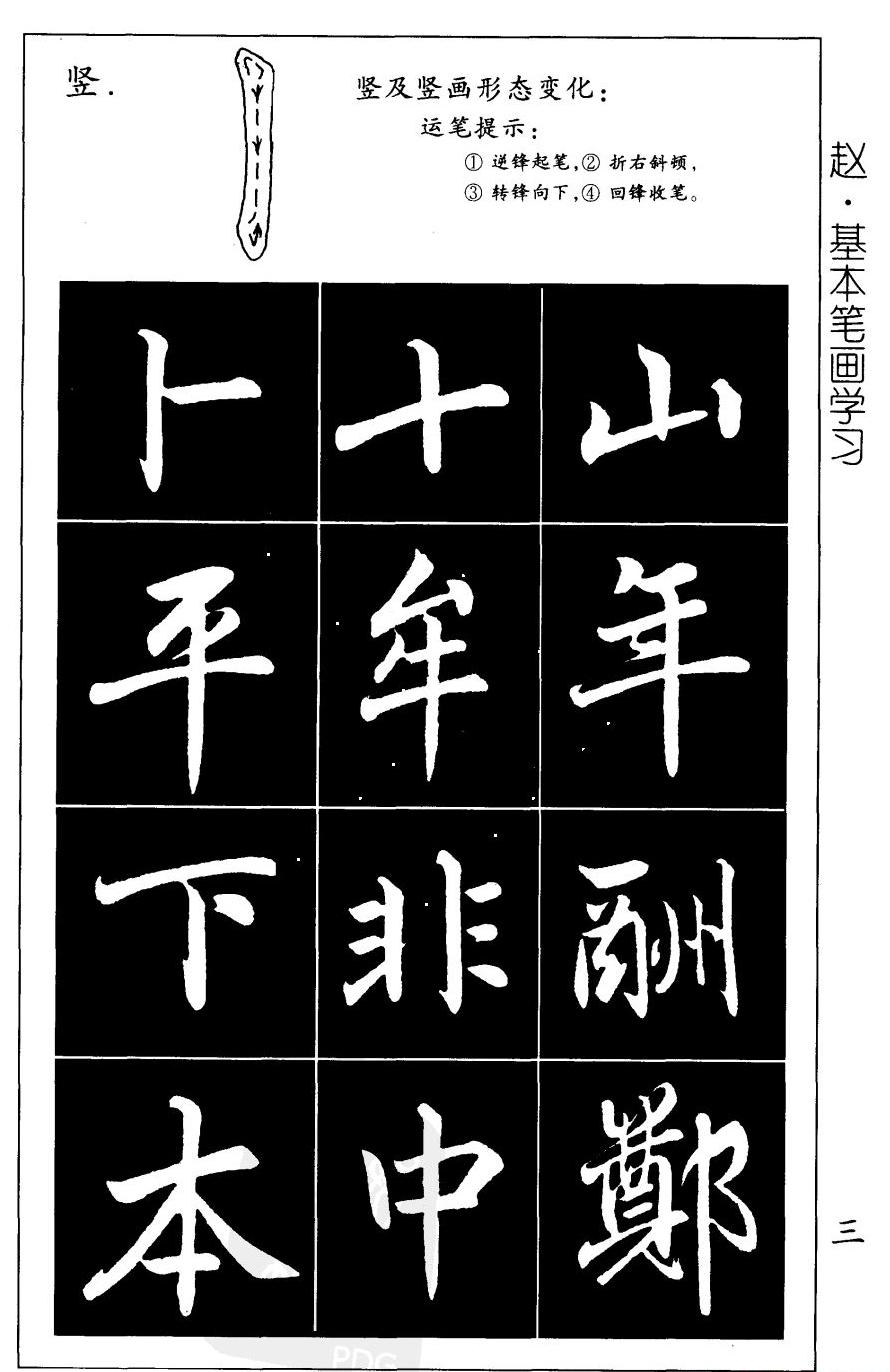 竖.
竖及竖画形态变化：
运笔提示：
① 逆锋起笔,② 折右斜顿，
③ 转锋向下,④ 回锋收笔。
赵·基本笔画学习
卜 十 山
平 牟 年
下 非 酬
本 中 鄭
三
PDG